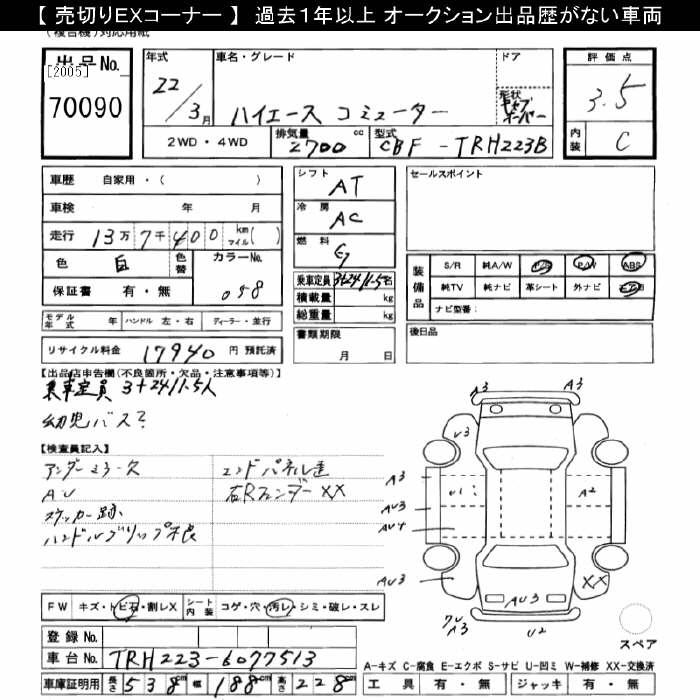 【 売切りEXコーナー 】 過去1年以上 オークション出品歴がない車両
(複合機)対応用紙
出品No.
[2005]
70090
年式
22/3月
車名・グレード
ハイエース コミューター
ドア
形状
評価点
3.5
内装
C
2WD・4WD
排気量
2700 cc
型式
CBF-TRH223B
車歴 自家用・( )
車検 年 月
走行 13万7千400 km マイル( )
色 白 色替 カラーNo. 058
保証書 有・無
モデル年式 年 ハンドル 左・右 ディーラー・並行
リサイクル料金 17940 円 預託済
シフト AT
冷房 AC
燃料
乗車定員 3+24/1.5名
積載量 kg
総重量 kg
書類期限
月 日
セールスポイント
装備品
S/R 純A/W P/S P/W ABS
純TV 純ナビ 革シート 外ナビ エアB
ナビ型番:
後日品
【出品店申告欄(不良箇所・欠品・注意事項等)】
乗車定員 3+24/1.5人
幼児バス
【検査員記入】
アンダーミラー欠
AU
ステッカー跡
ハンドルグリップ不良
エンドパネル
右Rフェンダー XX
A3
A3
U3
A3
U1
A2
AU3
AU4
AU3
AU3
XX
A3
U2
スペア
FW キズ・トビ石・割レX シート内装 コゲ・穴・汚レ・シミ・破レ・スレ
登録No.
車台No. TRH223-6077513
車庫証明用 長さ 538cm 幅 188cm 高さ 228cm
A-キズ C-腐食 E-エクボ S-サビ U-凹ミ W-補修 XX-交換済
工具 有・無 ジャッキ 有・無